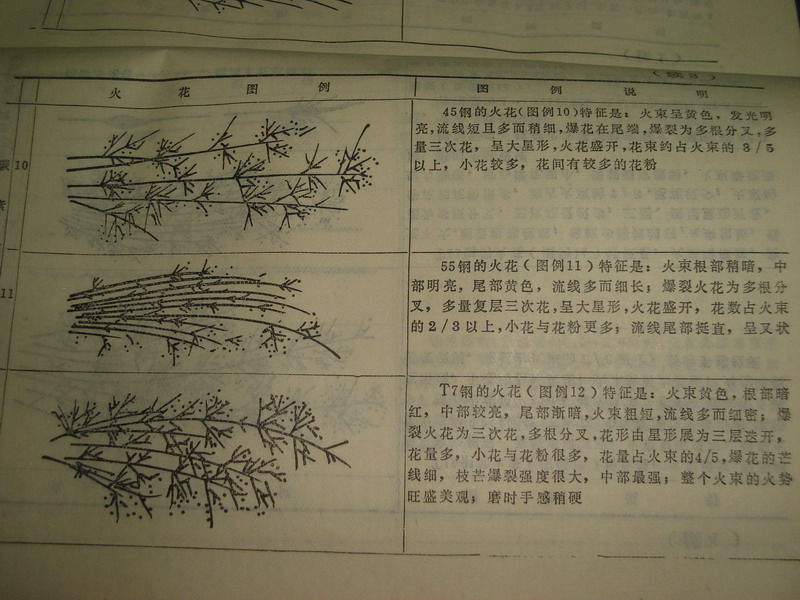 （续3）
火花图例
图例说明
10
45钢的火花(图例10)特征是：火束呈黄色，发光明
亮，流线短且多而稍细，爆花在尾端，爆裂为多根分叉，多
量三次花，呈大星形，火花盛开，花束约占火束的3/5
以上，小花较多，花间有较多的花粉
11
55钢的火花(图例11)特征是：火束根部稍暗，中
部明亮，尾部黄色，流线多而细长；爆裂火花为多根分
叉，多量复层三次花，呈大星形，火花盛开，花数占火束
的2/3以上，小花与花粉更多；流线尾部挺直，呈叉状
T7钢的火花(图例12)特征是：火束黄色，根部暗
红，中部较亮，尾部渐暗，火束粗短，流线多而细密；爆
裂火花为三次花，多根分叉，花形由星形展为三层迭开，
花量多，小花与花粉很多，花量占火束的4/5，爆花的芒
线细，枝芒爆裂强度很大，中部最强；整个火束的火势
旺盛美观；磨时手感稍硬